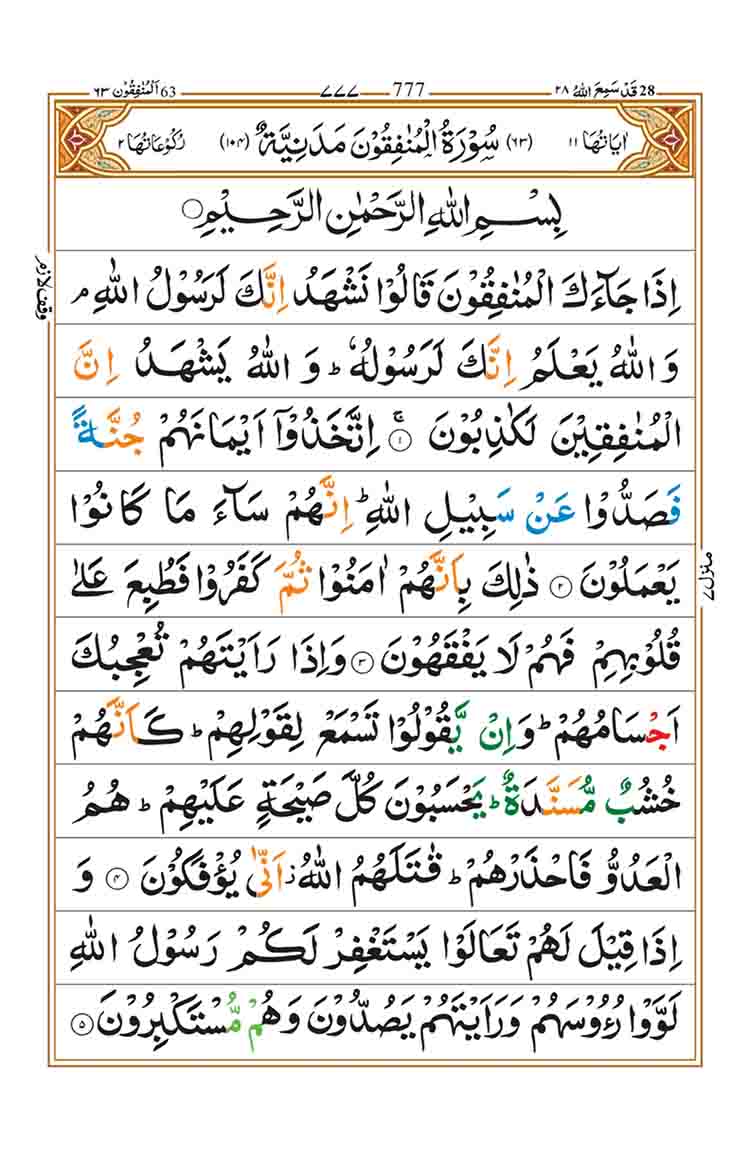 28 قَدْ سَمِعَ اللّٰهُ ٢٨ 777 ٧٧٧ 63 اَلْمُنٰفِقُوْن ٦٣
اٰيَاتُهَا ١١ (٦٣) سُوْرَةُ الْمُنٰفِقُوْنَ مَدَنِيَّةٌ (١٠٤) رُكُوْعَاتُهَا ٢
بِسْمِ اللّٰهِ الرَّحْمٰنِ الرَّحِيْمِ۝
اِذَا جَآءَكَ الْمُنٰفِقُوْنَ قَالُوْا نَشْهَدُ اِنَّكَ لَرَسُوْلُ اللّٰهِ ۘ
وقف لازم
وَ اللّٰهُ يَعْلَمُ اِنَّكَ لَرَسُوْلُهٗ ؕ وَ اللّٰهُ يَشْهَدُ اِنَّ
الْمُنٰفِقِيْنَ لَكٰذِبُوْنَ ۚ ١ اِتَّخَذُوْۤا اَيْمَانَهُمْ جُنَّةً
فَصَدُّوْا عَنْ سَبِيْلِ اللّٰهِ ؕ اِنَّهُمْ سَآءَ مَا كَانُوْا
يَعْمَلُوْنَ ٢ ذٰلِكَ بِاَنَّهُمْ اٰمَنُوْا ثُمَّ كَفَرُوْا فَطُبِعَ عَلٰى
منزل ٧
قُلُوْبِهِمْ فَهُمْ لَا يَفْقَهُوْنَ ٣ وَاِذَا رَاَيْتَهُمْ تُعْجِبُكَ
اَجْسَامُهُمْ ؕ وَاِنْ يَّقُوْلُوْا تَسْمَعْ لِقَوْلِهِمْ ؕ كَاَنَّهُمْ
خُشُبٌ مُّسَنَّدَةٌ ؕ يَحْسَبُوْنَ كُلَّ صَيْحَةٍ عَلَيْهِمْ ؕ هُمُ
الْعَدُوُّ فَاحْذَرْهُمْ ؕ قٰتَلَهُمُ اللّٰهُ ؗ اَنّٰى يُؤْفَكُوْنَ ٤ وَ
اِذَا قِيْلَ لَهُمْ تَعَالَوْا يَسْتَغْفِرْ لَكُمْ رَسُوْلُ اللّٰهِ
لَوَّوْا رُءُوْسَهُمْ وَرَاَيْتَهُمْ يَصُدُّوْنَ وَهُمْ مُّسْتَكْبِرُوْنَ ٥